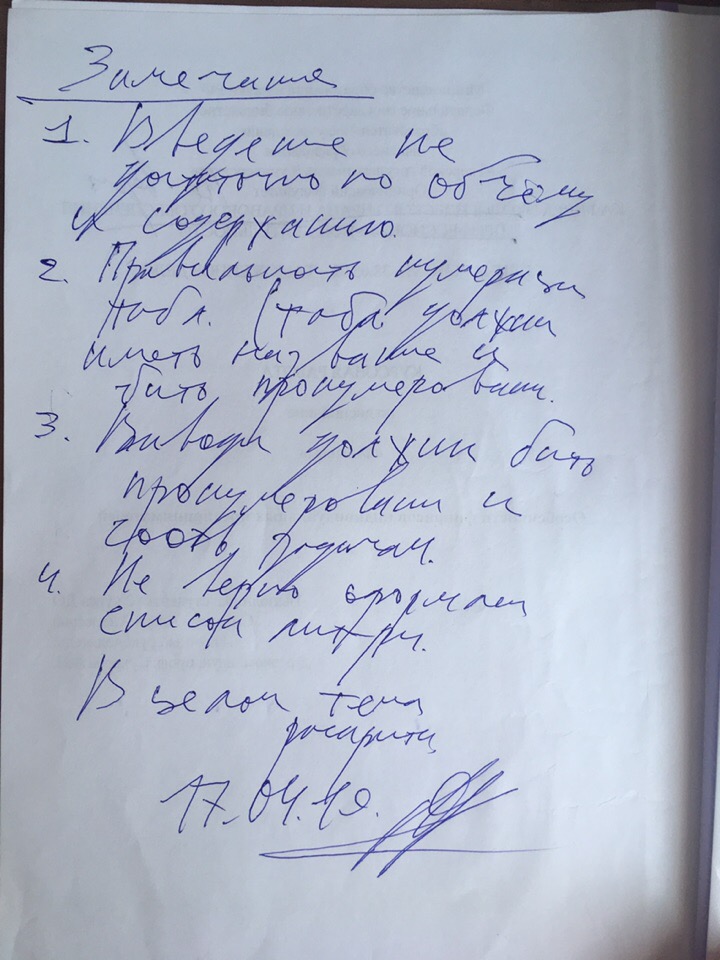 Замечания
1. Введение не
достаточно по объёму
и содержанию.
2. Правильность нумерации
табл. (табл должны
иметь название и
быть пронумерованы.
3. Выводы должны быть
пронумерованы и
соотв. задачам.
4. Не верно оформлен
список литры.
В целом тема
раскрыта
17.04.19.